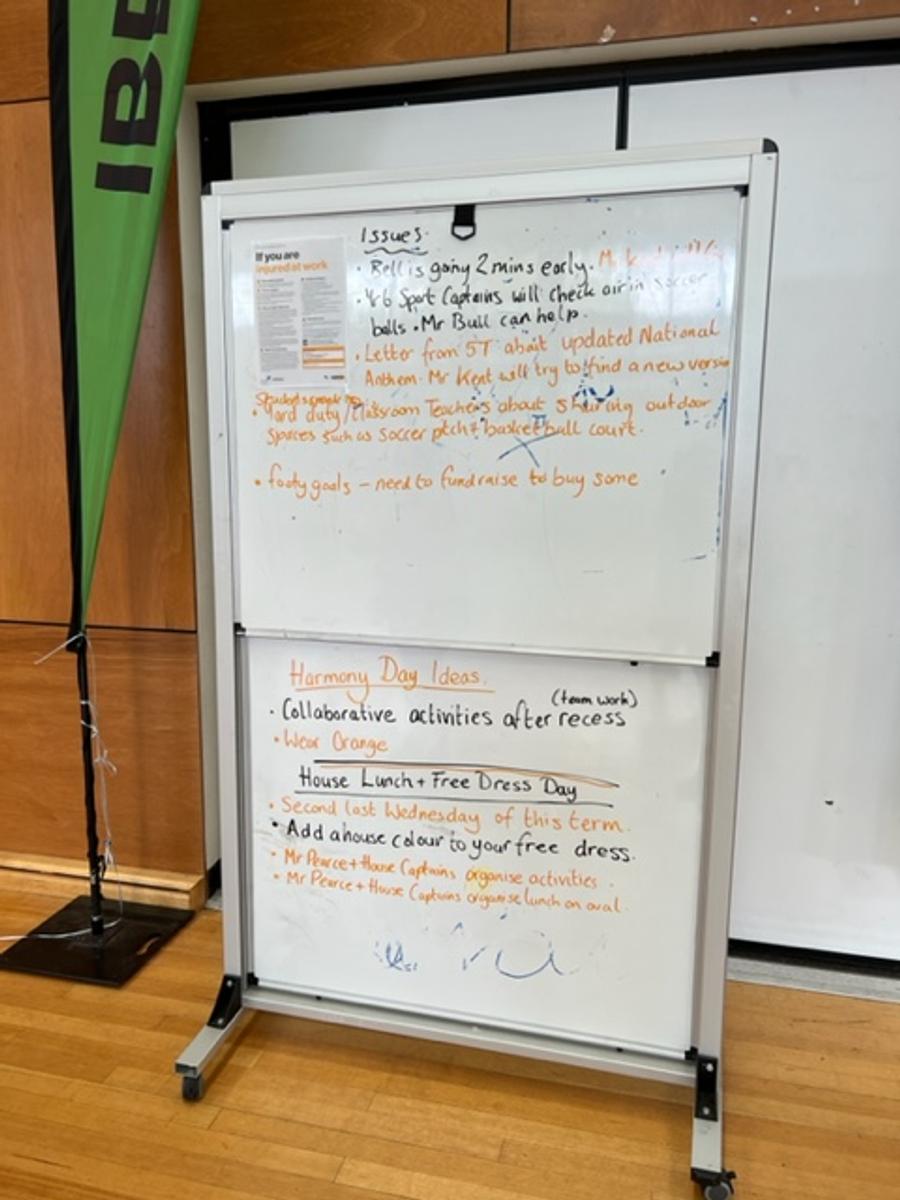 IBE
If you are
injured at work
Issues.
• Bell is going 2 mins early.
• Yr 6 Sport Captains will check air in soccer
balls. Mr Bull can help.
• Letter from 5T about updated National
Anthem. Mr Kent will try to find a new versio
• Yard duty/Classroom Teachers about sharing outdoor
spaces such as soccer ptch + basketball court.
• footy goals – need to fundraise to buy some
Harmony Day Ideas.
(team work)
• Collaborative activities after recess
• Wear Orange
House Lunch + Free Dress Day
• Second last Wednesday of this term.
• Add a house colour to your free dress.
• Mr Pearce + House Captains organise activities.
• Mr Pearce + House Captains organise lunch on oval.